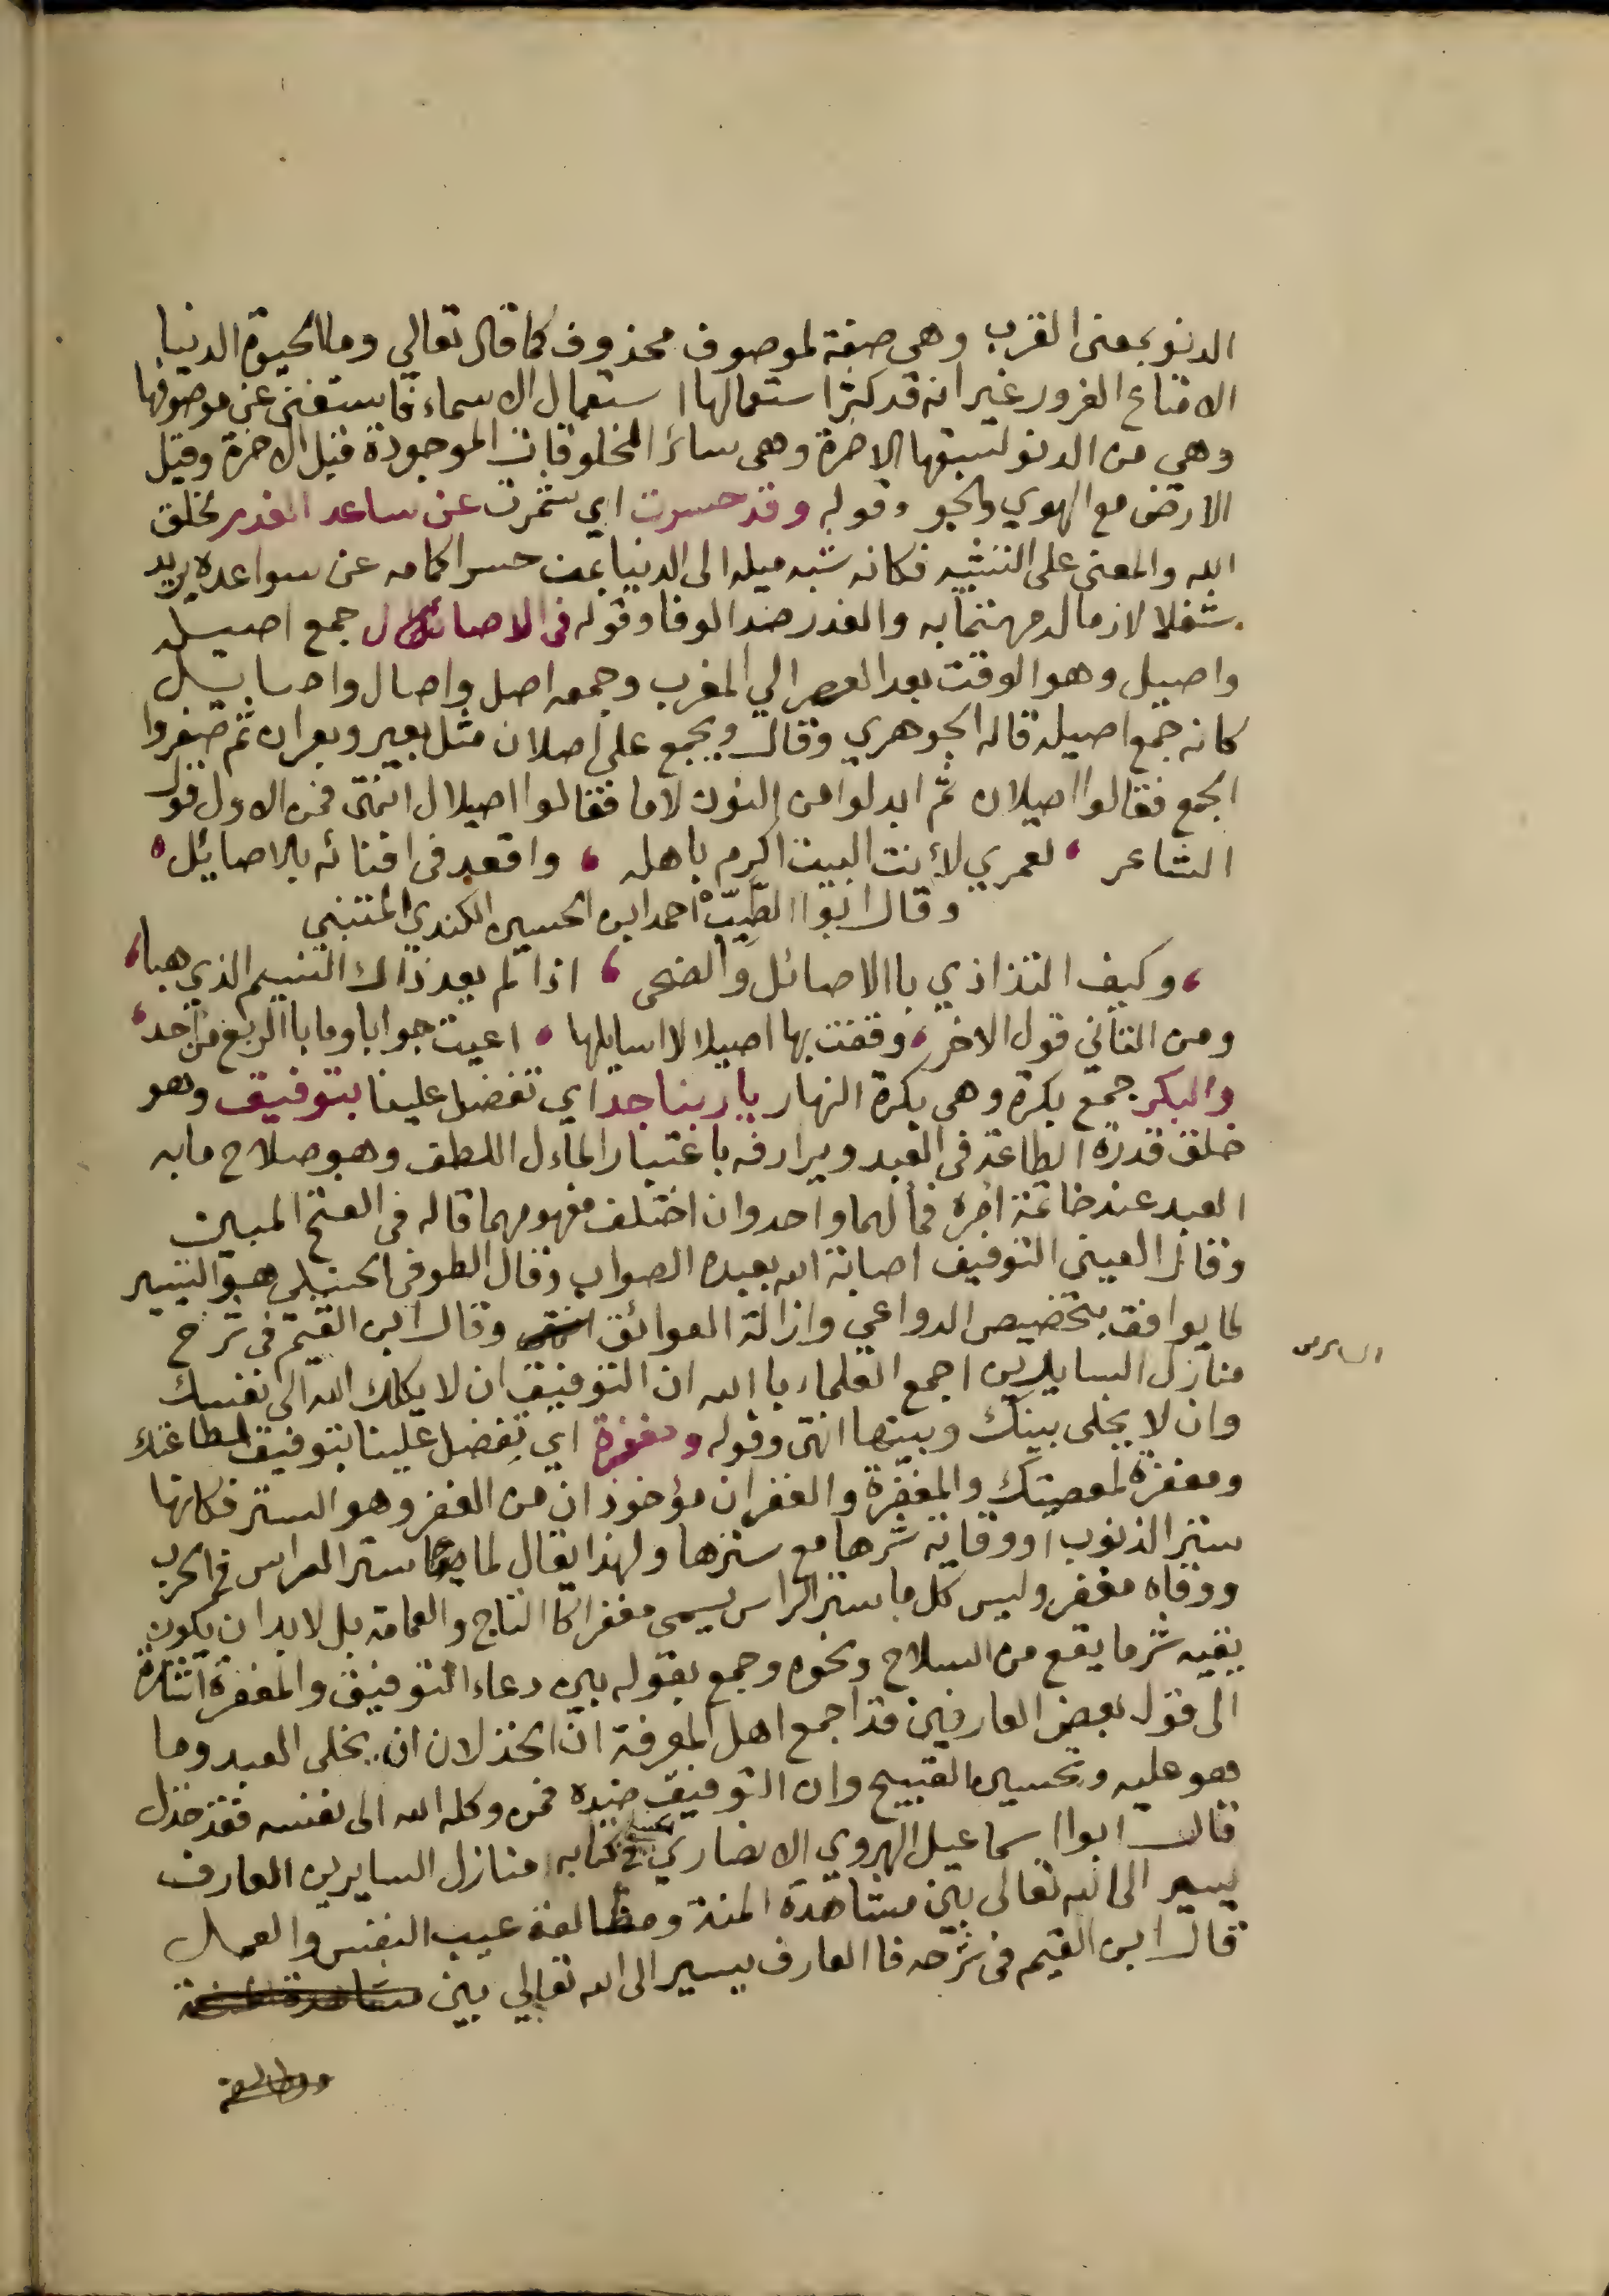 الدنو بمعنى القرب وهي صفة لموصوف محذوف كما قال تعالي وما الحيوة الدنيا
الا متاع الغرور غير انه قد كثر استعمالها استعمال الاسماء فاستغنى عن موصوفها
وهي من الدنو لسبقها الاخرة وهي سائر المخلوقات الموجودة قبل الاخرة وقيل
الارض مع الهوي والجو وقوله وقد حسرت اي شمرت عن ساعد الغدر بخلق
الله والمعنى على التشبيه فكانه شبه ميله الى الدنيا بمن حسر اكمامه عن سواعده يريد
شغلا لازما له مهتما به والغدر ضد الوفا وقوله في الاصائل جمع اصيله
واصيل وهو الوقت بعد العصر الي المغرب وجمعه اصل واصال واصايل
كانه جمع اصيله قاله الجوهري وقال ويجمع على اصلان مثل بعير وبعران ثم صغروا
الجمع فقالوا اصيلان ثم ابدلوا من النون لاما فقالوا اصيلال انتهى فمن الاول قول
الشاعر ، لعمري لأنت البيت اكرم باهله ، واقعد في افنائه بالاصايئل ،
وقال ابوا الطيب احمد ابن الحسين الكندي المتنبي
، وكيف التذاذي باالاصائل والضحى ، اذا لم يعد ذاك النسيم الذي هبا ،
ومن الثاني قول الاخر ، وقفت بها اصيلالا اسايلها ، اعيت جوابا وما باالربع من احد ،
والبكر جمع بكرة وهي بكرة النهار ياربنا جد اي تفضل علينا بتوفيق وهو
خلق قدرة الطاعة في العبد ويرادفه باعتبار المأل اللطف وهو صلاح ما به
العبد عند خاتمة امره فمألهما واحد وان اختلف مفهومهما قاله في الفتح المبين
وقال العيني التوفيق اصابة الله بعبده الصواب وقال الطوفي الحنبلي هو التيسير
لما يوافق بتخصيص الدواعي وازالة العوائق وقال ابن القيم في شرح
منازل السايرين اجمع العلماء باالله ان التوفيق ان لا يكلك الله الى نفسك
السايرين
وان لا يخلى بينك وبينها انتهى وقوله ومغفرة اي تفضل علينا بتوفيق لطاعتك
ومغفرة لمعصيتك والمغفرة والغفران مؤخوذان من الغفر وهو الستر فكانها
ستر الذنوب ووقاية شرها مع سترها ولهذا يقال لما ستر الراس في الحرب
ووقاه مغفر وليس كل ما ستر الراس يسمى مغفرا كاالتاج والعمامة بل لابد ان يكون
يقيه شر ما يقع من السلاح ونحوه وجمع بقوله بين دعاء التوفيق والمغفرة اشارة
الى قول بعض العارفين قد اجمع اهل المعرفة ان الخذلان ان يخلى العبد وما
هو عليه وتحسين القبيح وان التوفيق ضده فمن وكله الله الى نفسه فقد خذل
قال ابوا اسماعيل الهروي الانصاري في كتابه منازل السايرين العارف
يسير الى الله تعالى بين مشاهدة المنة ومطالعة عيب النفس والعمل
قال ابن القيم في شرحه فاالعارف يسير الى الله تعالي بين مشاهدة المنة
ومطالعة